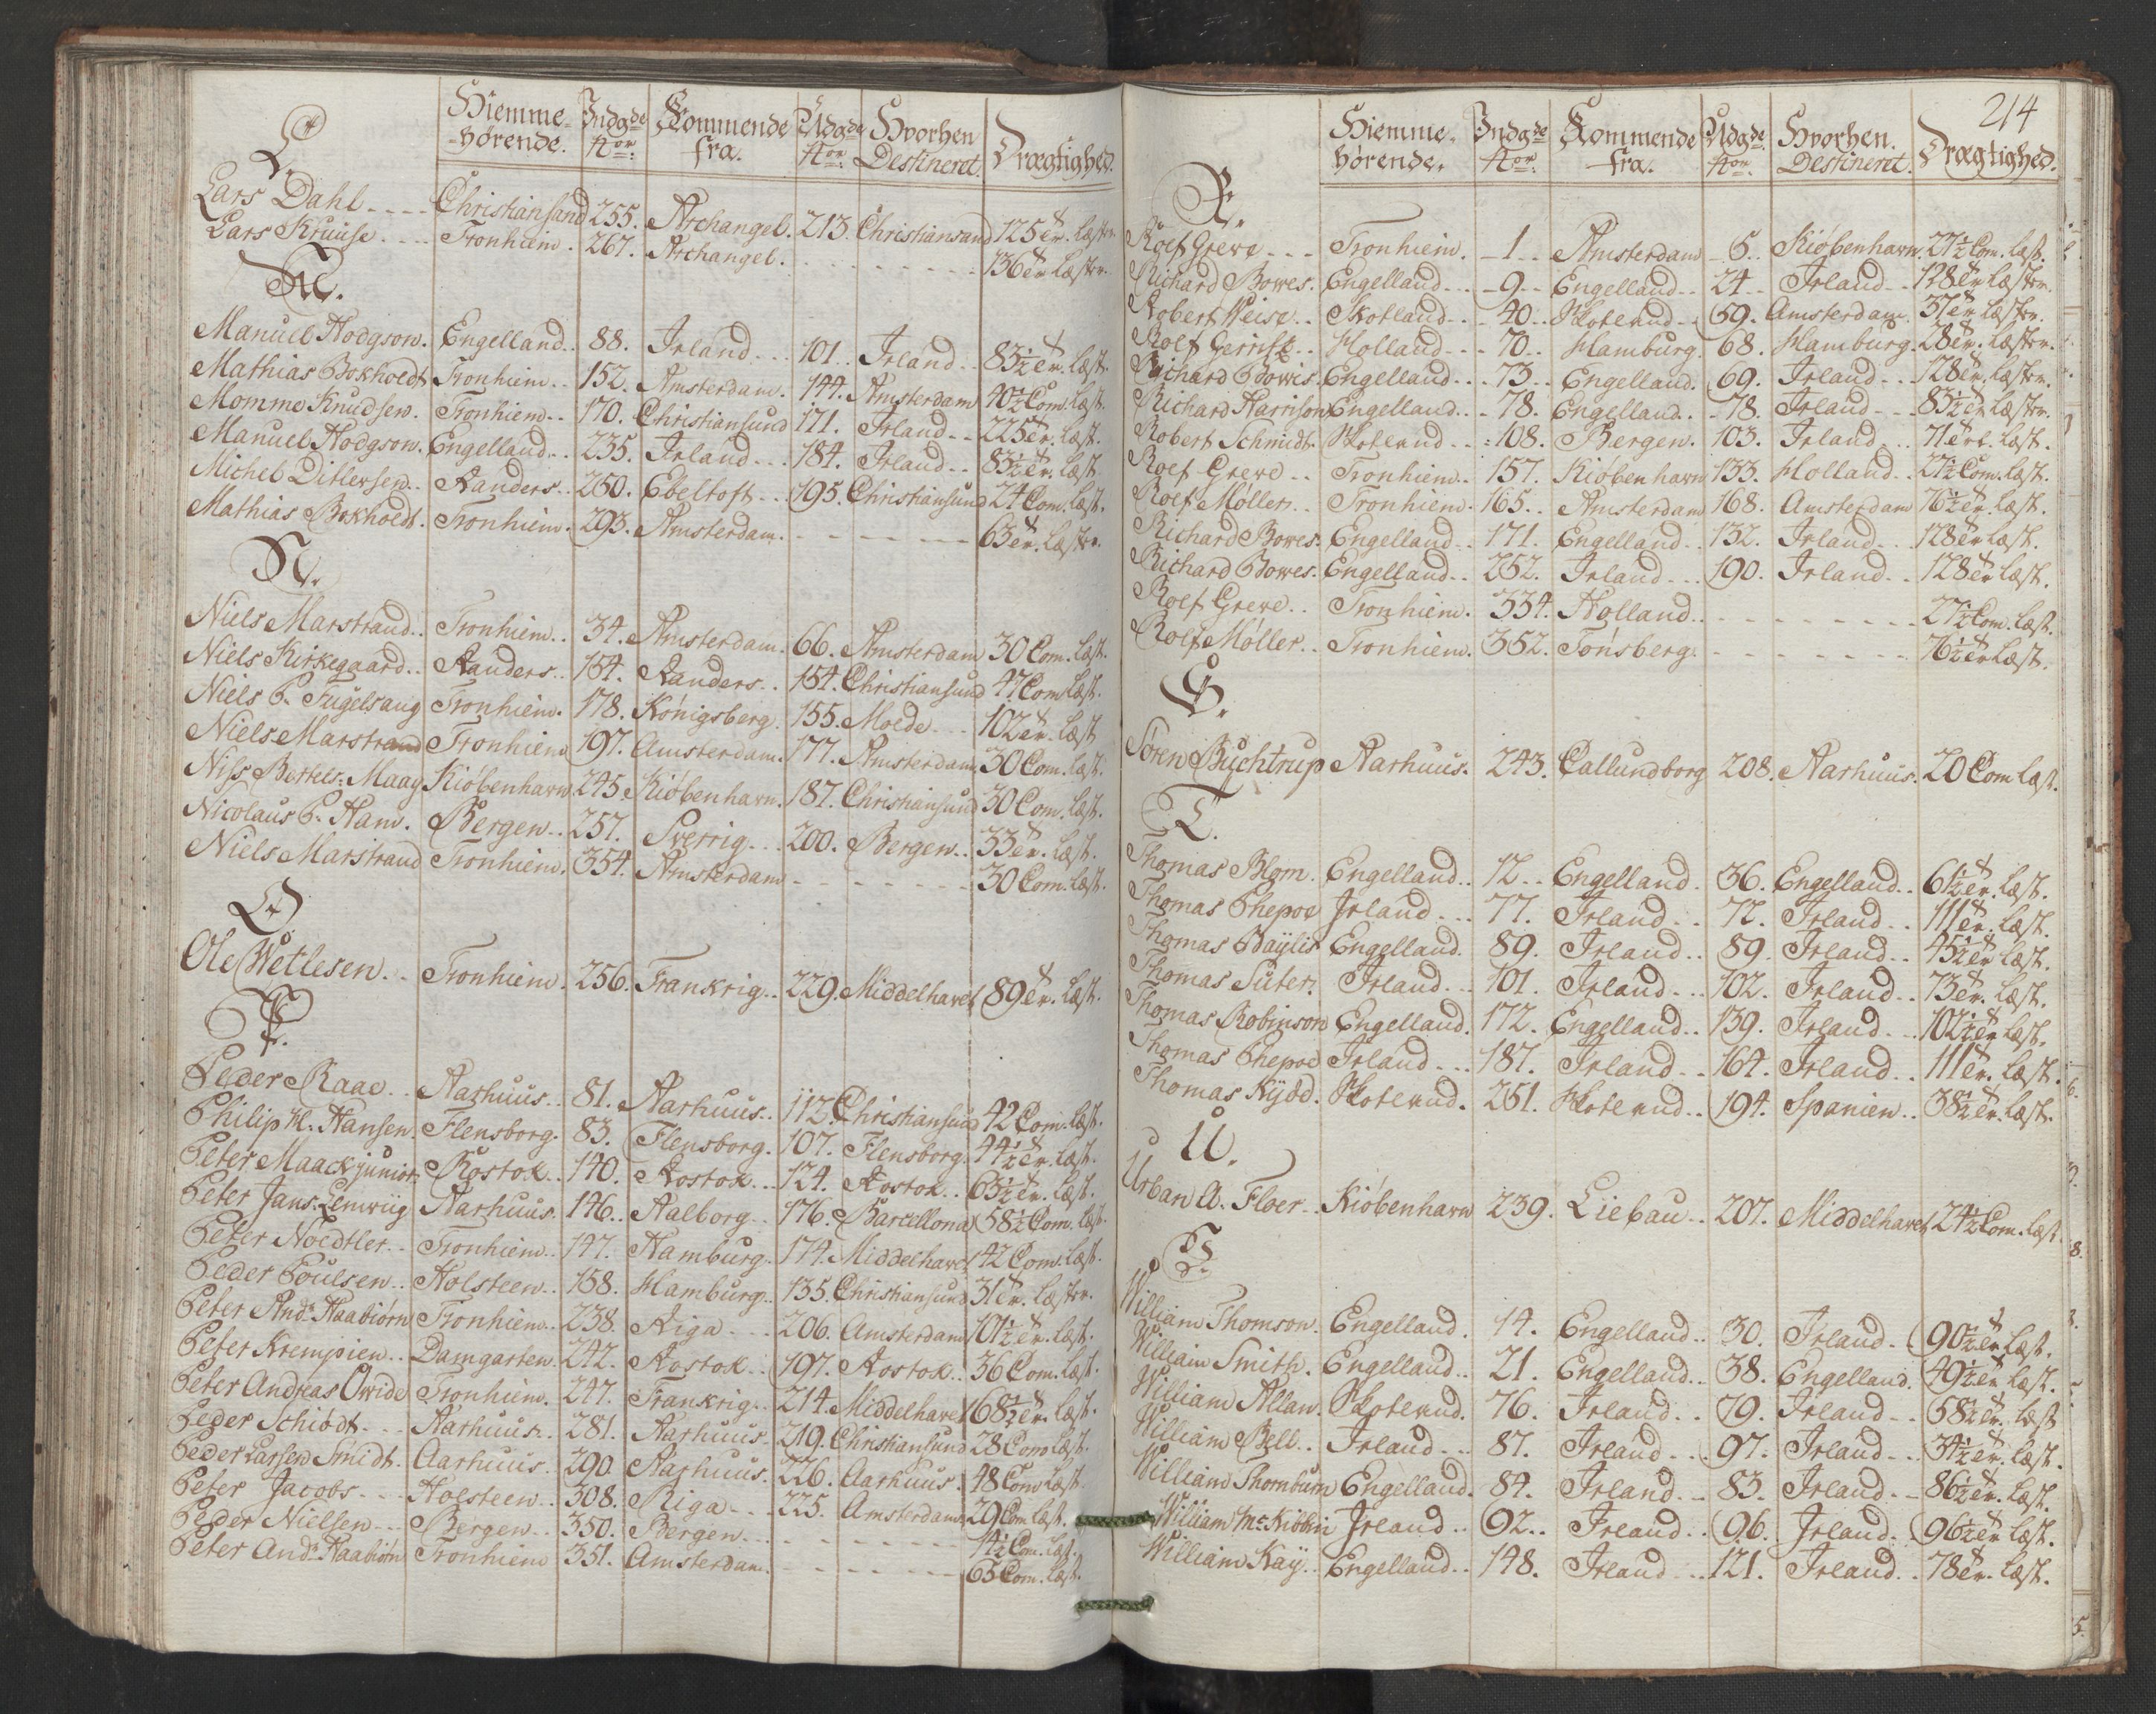 Hiemme- Indgde Kommende Udgde Hvorhen Drægtighed.
hørende. Nor: fra. Nor: Destineret.
L.
Lars Dahl Christiansand 255. Archangel. 213. Christiansand 125 tr. Læster
Lars Kruuse Tronhiem. 267. Archangel. 136 tr Læster.
M.
Manuel Hodgson. Engelland 88. Irland 101 Irland 83½ tr. Læst.
Mathias Bokholdt Tronhiem 152. Amsterdam. 144. Amsterdam 40½ Com. Læst.
Momme Knudsen. Tronhiem 170. Christiansund 171. Irland 225 tr. Læst.
Manuel Hodgson. Engelland 235. Irland 184. Irland 83½ tr. Læst
Michel Ditlevsen Randers 250. Ebeltoft 195. Christiansund 24 Com. Læst.
Mathias Bokholdt. Tronhiem. 293. Amsterdam. 63 tr. Læster.
N.
Niels Marstrand Tronhiem 34. Amsterdam. 66. Amsterdam 30 Com. Læst.
Niels Kirkegaard Randers 154. Randers 154. Christiansund 47 Com Læst.
Niels P. Fugelsang Tronhiem. 178. Königsberg. 155. Molde 102 tr. Læst
Niels Marstrand Tronhiem 197. Amsterdam. 177. Amsterdam 30 Com. Læst.
Niss Bertels: Maag Kiöbenhavn 245. Kiöbenhavn. 187. Christiansund 30 Com. Læst.
Nicolaus P. Ham. Bergen 257. Sverrig 200. Bergen 33 tr. Læst.
Niels Marstrand Tronhiem. 354. Amsterdam 30 Com. Læst.
O
Ole Wetlesen. Tronhiem. 256. Frankrig 229. Middelhavet 89 tr. Læst.
P.
Peder Raae Aarhuus 81. Aarhuus 112. Christiansund 42 Com. Læst.
Philip H. Hansen. Flensborg. 83. Flensborg. 107. Flensborg 44½ tr. Læst.
Peter Maack junior. Rostok 140. Rostok 124. Rostok 63½ tr. Læst.
Peter Jans: Lemvig Aarhuus. 146. Aalborg 176. Barcellona 58½ Com. Læst.
Peter Noedtler Tronhiem 147. Hamburg. 174. Middelhavet 42 Com. Læst.
Peder Poulsen Holsteen 158. Hamburg 135. Christiansund 31 tr. Læster.
Peter Andr: Haabiörn Tronhiem 238. Riga 206. Amsterdam 101½ tr. Læst.
Peter Krempien Damgarten. 242. Rostok 197. Rostok 36 Com. Læst.
Peter Andreas Owide Tronhiem. 247. Frankrig 214. Middelhavet 68½ tr. Læst.
Peder Schiödt Aarhuus. 281. Aarhuus 219. Christiansund 28 Com Læst.
Peder Larsen Smidt. Aarhuus. 290. Aarhuus. 226. Aarhuus. 48 Com Læst.
Peter Jacobs Holsteen 308. Riga 225. Amsterdam 29 Com Læst.
Peder Nielsen Bergen 350. Bergen 14½ Com. Læst.
Peter Andr: Haabiörn Tronhiem 351. Amsterdam. 65 Com. Læst.
214
Hiemme- Indgde Kommende Udgde Hvorhen. Drægtighed.
hörende. Nor: fra. Nor: Destineret.
R.
Rolf Greve Tronhiem. 1 Amsterdam 5 Kiöbenhavn. 27½ Com. Læst.
Richard Bowes. Engelland 9 Engelland 24 Irland 128 tr Læster.
Robert Weise Skotland 40 Skotland 59. Amsterdam. 37 tr Læster.
Rolf Gerrits Holland 70 Hamburg. 68. Hamburg. 28 tr. Læster.
Richard Bowis. Engelland 73 Engelland. 69. Irland 128 tr. Læster.
Richard Harrison Engelland 78. Engelland. 78. Irland 83½ tr Læster.
Robert Schmidt. Skotland 108. Bergen. 103. Irland 71 tr. Læst.
Rolf Greve Tronhiem 157. Kiöbenhavn 133. Holland 27½ Com. Læst.
Rolf Möller Tronhiem. 165. Amsterdam 168. Amsterdam 76½ tr. Læst.
Richard Bowes. Engelland 171. Engelland 132. Irland 128 tr Læst.
Richard Bowes. Engelland 252. Irland 190. Irland 128 tr Læst.
Rolf Greve Tronhiem. 334. Holland 27½ Com. Læst.
Rolf Möller Tronhiem. 352. Tönsberg. 76½ tr Læst.
S.
Sören Buchtrup Aarhuus. 243. Callundborg 208. Aarhuus. 20 Com Læst.
T.
Thomas Blom. Engelland 12 Engelland. 36. Engelland 61½ tr. Læst.
Thomas Phepoe Irland 77. Irland 72. Irland 111 tr. Læst.
Thomas Baylis Engelland. 89. Irland 89. Irland 45½ tr Læst.
Thomas Suter. Irland 101. Irland 102. Irland 73 tr. Læst.
Thomas Robinson Engelland. 172. Engelland 139. Irland 102½ tr Læst.
Thomas Phepoe Irland 187. Irland 164. Irland 111 tr. Læst.
Thomas Kydd. Skotland. 251. Skotland 194. Spanien 38½ tr Læst.
U.
Urban A. Floer Kiöbenhavn 239. Liebau 207. Middelhavet 24½ Com. Læst.
W.
William Thomson. Engelland. 14. Engelland 30. Irland 90½ tr Læst.
William Smith. Engelland 21. Engelland 38. Engelland. 49½ tr Læst.
William Allan. Skotland. 76. Irland 79. Irland 58½ tr. Læst
William Bell Irland 87. Irland 97. Irland 34½ tr. Læst.
William Thornburn Engelland. 84. Irland 83. Irland 86½ tr. Læst.
William Mc Kibbin Irland 92 Irland 96. Irland 96½ tr Læst.
William Kay Engelland 148. Irland 121. Irland 78 tr. Læst.